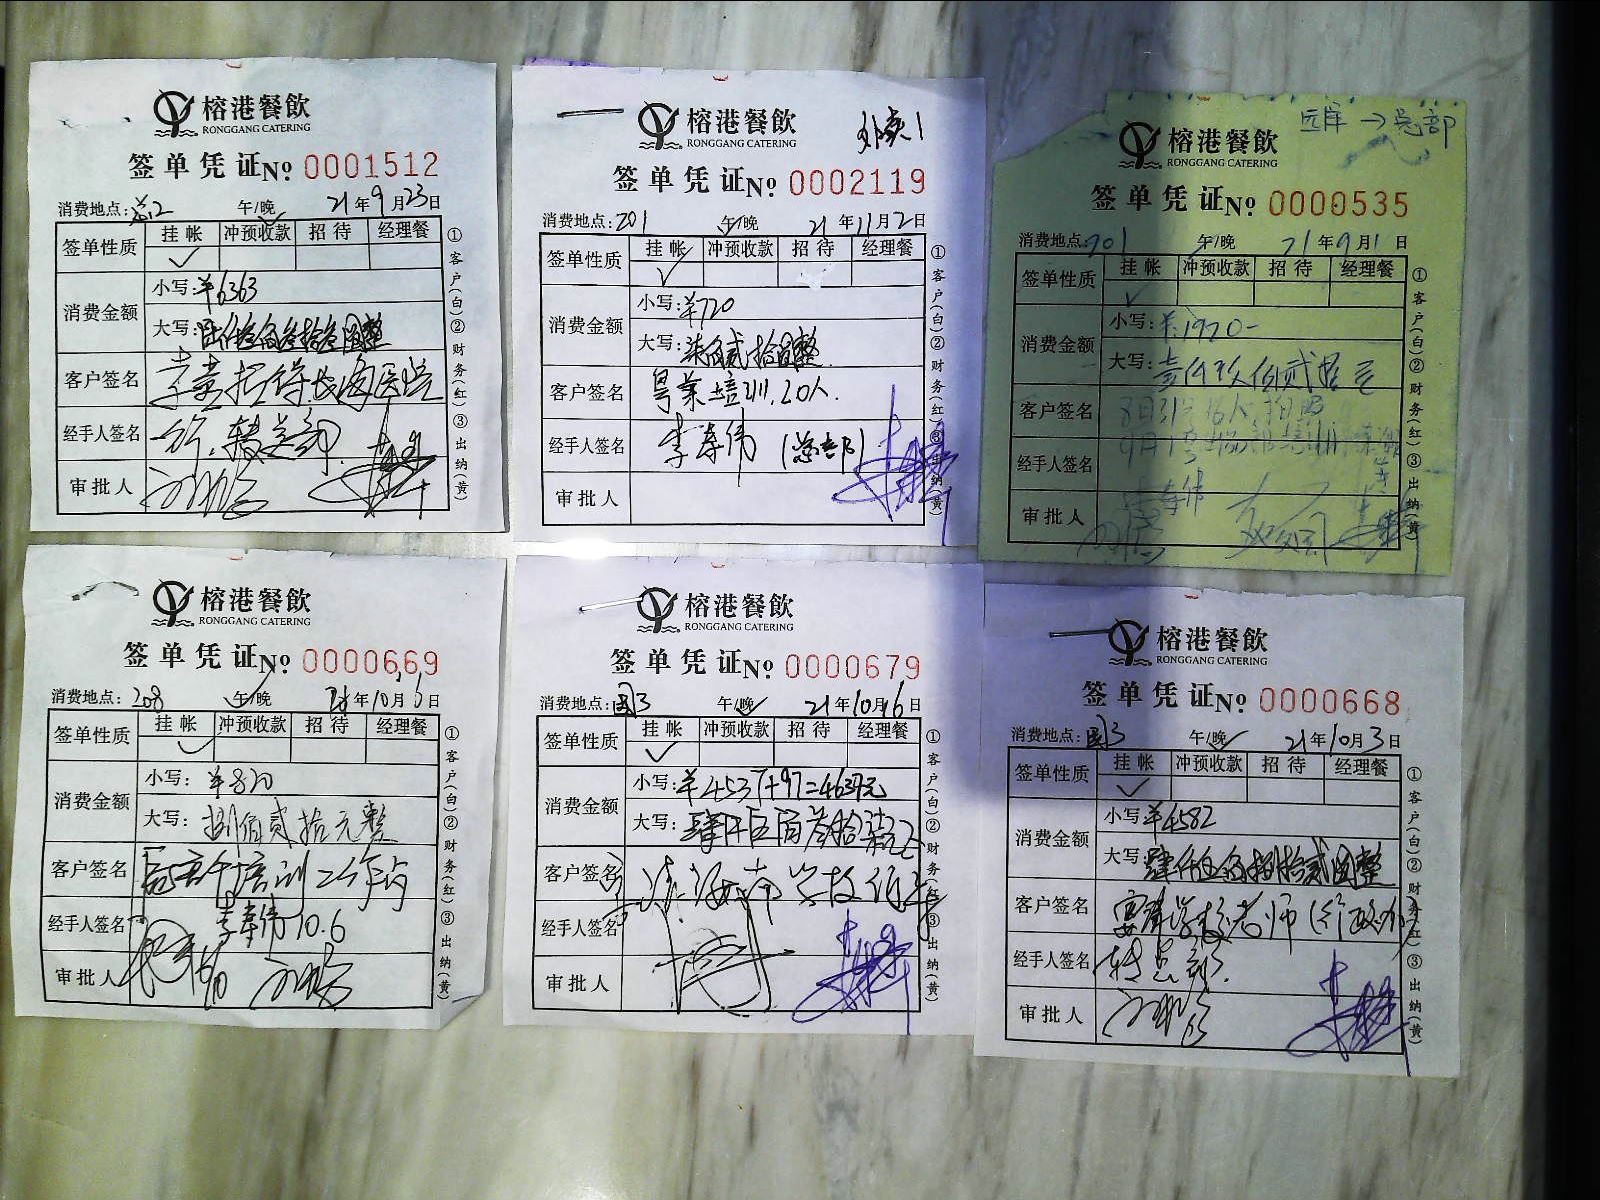 榕港餐飲
RONGGANG CATERING
签单凭证No 0001512
消费地点: 午/晚 21年9月23日
签单性质 挂帐 冲预收款 招待 经理餐
消费金额 小写:¥6363
大写:陆仟叁佰叁拾叁圆整
客户签名
经手人签名
审批人
①客户(白)②财务(红)③出纳(黄)
榕港餐飲
RONGGANG CATERING
外卖1
签单凭证No 0002119
消费地点:201 午/晚 21年11月2日
签单性质 挂帐 冲预收款 招待 经理餐
消费金额 小写:¥720
大写:柒佰贰拾圆整
客户签名 粤菜培训.20人.
经手人签名 李寿伟 (总部)
审批人
①客户(白)②财务(红)③出纳(黄)
→总部
榕港餐飲
RONGGANG CATERING
签单凭证No 0000535
消费地点:201 午/晚 21年9月1日
签单性质 挂帐 冲预收款 招待 经理餐
消费金额 小写:¥1920-
大写:壹仟玖佰贰拾元
客户签名 8月31号16人
经手人签名 9月1号 培训
审批人
①客户(白)②财务(红)③出纳(黄)
榕港餐飲
RONGGANG CATERING
签单凭证No 0000669
消费地点:208 午/晚 21年10月6日
签单性质 挂帐 冲预收款 招待 经理餐
消费金额 小写:¥820
大写:捌佰贰拾元整
客户签名 培训
经手人签名 李寿伟 10.6
审批人
①客户(白)②财务(红)③出纳(黄)
榕港餐飲
RONGGANG CATERING
签单凭证No 0000679
消费地点:国3 午/晚 21年10月16日
签单性质 挂帐 冲预收款 招待 经理餐
消费金额 小写:¥4537+97=4637元
大写:肆仟伍佰叁拾柒元正
客户签名
经手人签名
审批人
①客户(白)②财务(红)③出纳(黄)
榕港餐飲
RONGGANG CATERING
签单凭证No 0000668
消费地点:国3 午/晚 21年10月3日
签单性质 挂帐 冲预收款 招待 经理餐
消费金额 小写:¥4582
大写:肆仟伍佰捌拾贰圆整
客户签名 学校老师(行政办)
经手人签名 转总部.
审批人
①客户(白)②财务(红)③出纳(黄)